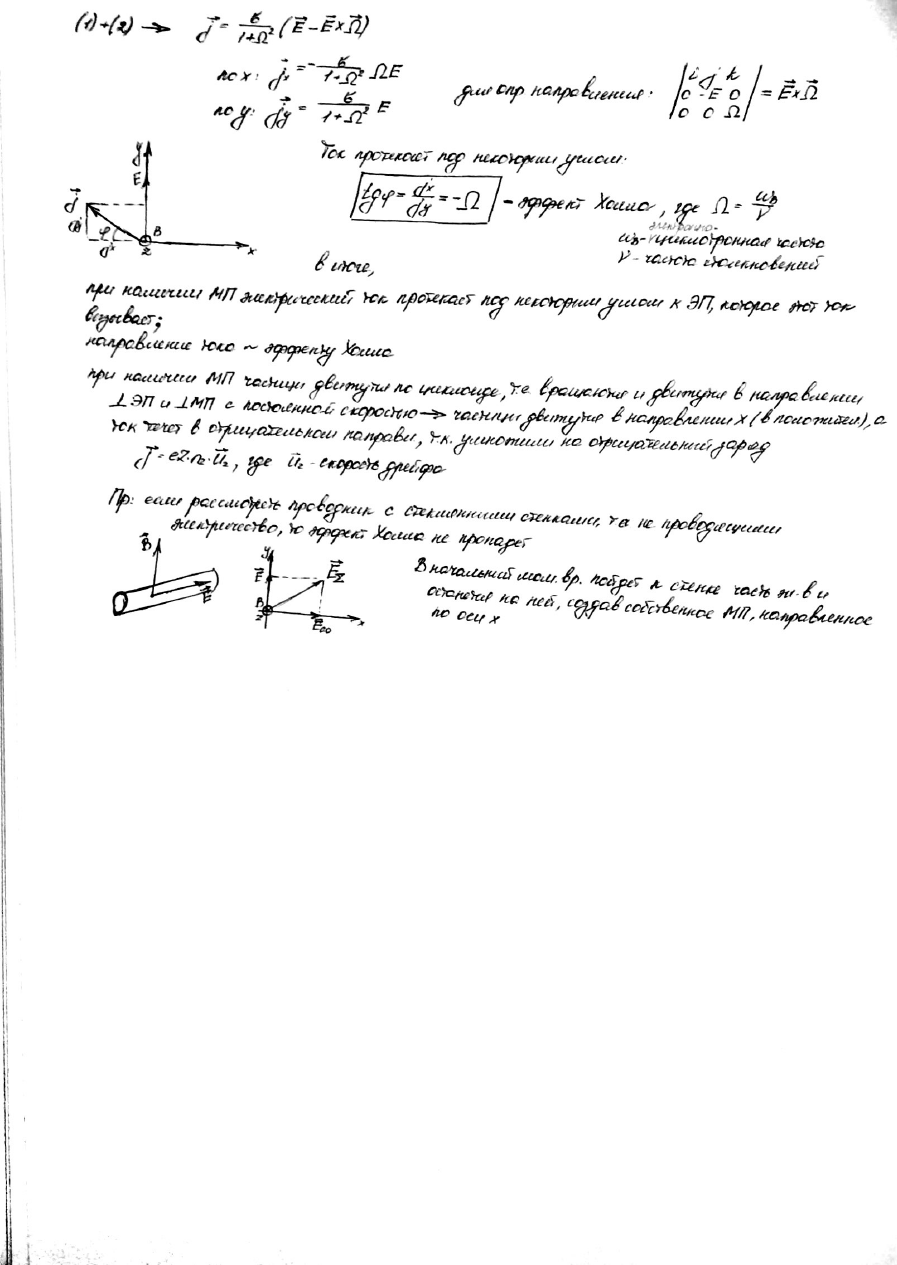 (1)+(2) → j⃗ = σ/(1+Ω²) (E⃗ – E⃗×Ω⃗)
по x: j⃗x = – σ/(1+Ω²) ΩE
по y: j⃗y = σ/(1+Ω²) E
для опр направления: |i j k; 0 E 0; 0 0 Ω| = E⃗×Ω⃗
Ток протекает под некоторым углом.
tgφ = jx/jy = –Ω – эффект Холла, где Ω = ωз/ν
электронно-
ωз – циклотронная частота
ν – частота столкновений
y
E
j⃗
φ
jx
B
z
x
в итоге,
при наличии МП электрический ток протекает под некоторым углом к ЭП, которое этот ток
вызывает;
направление тока ~ эффекту Холла
при наличии МП частицы движутся по циклоиде, т.е. вращаются и движутся в направлении
⊥ЭП и ⊥МП с постоянной скоростью → частицы движутся в направлении x (в положител), а
ток течет в отрицательном направл, т.к. умножили на отрицательный заряд
j⃗ = ez·n₂·u⃗₂, где u⃗₂ – скорость дрейфа
Пр: если рассмотреть проводник с стеклянными стенками, т.е не проводящими
электричество, то эффект Холла не пропадет
B⃗
E⃗
y
E⃗
E⃗Σ
B
z
E⃗со
x
В начальный мом. вр. пойдет к стенке часть эл-в и
останется на ней, создав собственное МП, направленное
по оси x